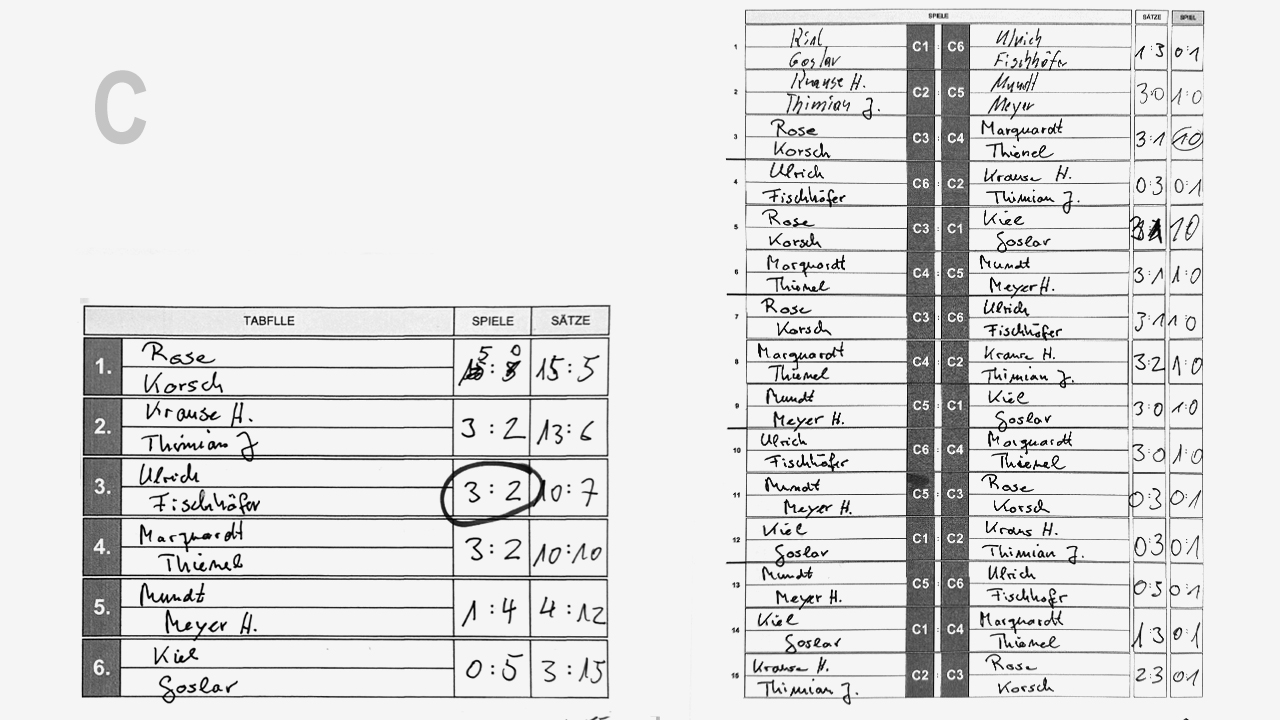 C
TABELLE SPIELE SÄTZE
1. Rose 5 0 15:5
Korsch
2. Krause H. 3:2 13:6
Thimian J
3. Ulrich 3:2 10:7
Fischhöfer
4. Marquardt 3:2 10:10
Thienel
5. Mundt 1:4 4:12
Meyer H.
6. Kiel 0:5 3:15
Goslar
SPIELE SÄTZE SPIEL
1 Kiel C1 : C6 Ulrich 1:3 0:1
Goslar Fischhöfer
2 Krause H. C2 : C5 Mundt 3:0 1:0
Thimian J. Meyer
3 Rose C3 : C4 Marquardt 3:1 1:0
Korsch Thienel
4 Ulrich C6 : C2 Krause H. 0:3 0:1
Fischhöfer Thimian J.
5 Rose C3 : C1 Kiel 10
Korsch Goslar
6 Marquardt C4 : C5 Mundt 3:1 1:0
Thienel Meyer H.
7 Rose C3 : C6 Ulrich 3:1 1:0
Korsch Fischhöfer
8 Marquardt C4 : C2 Krause H. 3:2 1:0
Thienel Thimian J.
9 Mundt C5 : C1 Kiel 3:0 1:0
Meyer H. Goslar
10 Ulrich C6 : C4 Marquardt 3:0 1:0
Fischhöfer Thienel
11 Mundt C5 : C3 Rose 0:3 0:1
Meyer H. Korsch
12 Kiel C1 : C2 Kraus H. 0:3 0:1
Goslar Thimian J.
13 Mundt C5 : C6 Ulrich 0:3 0:1
Meyer H. Fischhöfr
14 Kiel C1 : C4 Marquardt 1:3 0:1
Goslar Thienel
15 Krause H. C2 : C3 Rose 2:3 0:1
Thimian J. Korsch